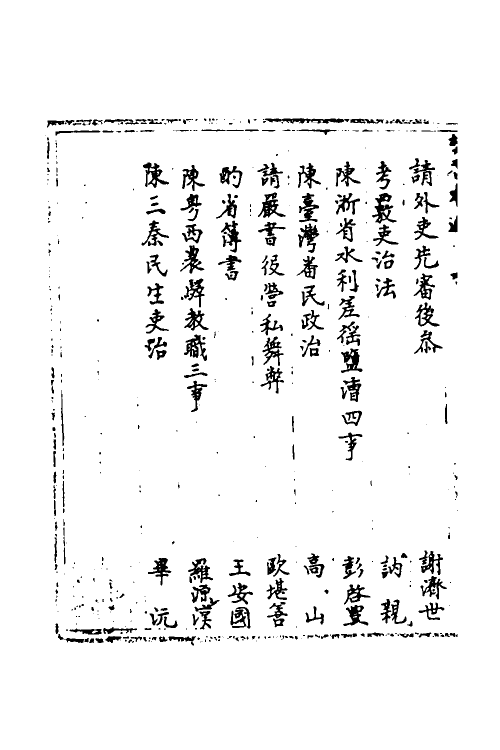 請外吏先審後叅 謝濟世
考覈吏治法 訥親
陳浙省水利差徭鹽漕四事 彭啓豐
陳臺灣畨民政治 高山
請嚴書役營私舞弊 歐堪善
酌省簿書 王安國
陳粤西農㷠教職三事 羅源漢
陳三秦民生吏治 畢沅